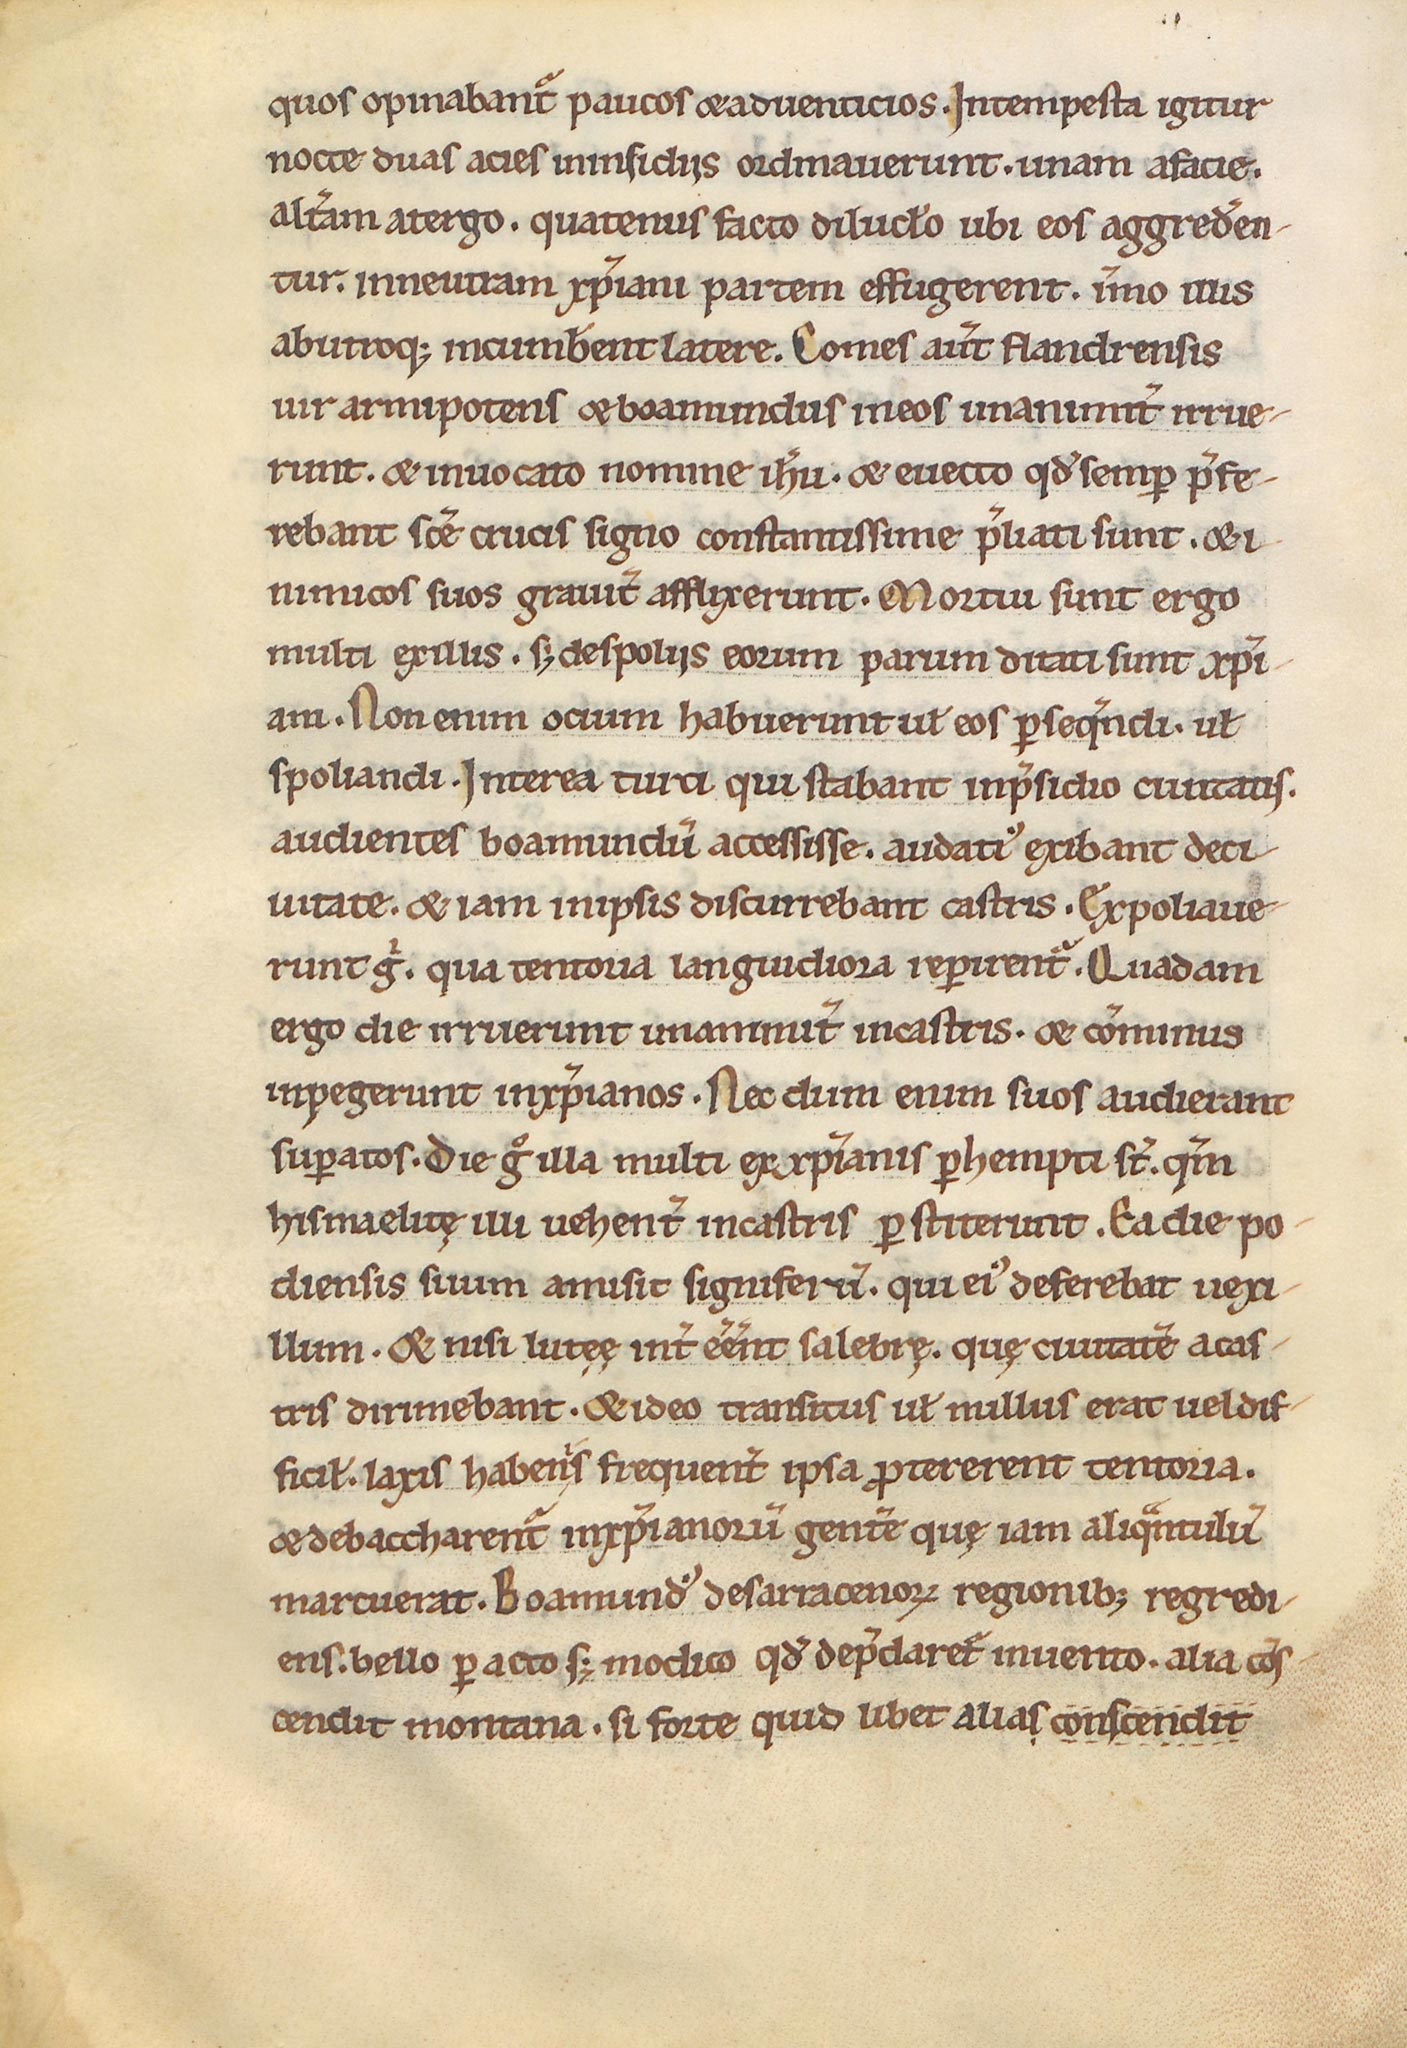 quos opinabant᷑ paucos & aduenticios. Intempesta igitur
nocte duas acies ininsidijs ordinauerunt. unam afacie.
alt̃am atergo. quatenus facto diluclo ubi eos aggreden-
tur. inneutram xp̃iani partem effugerent. im̃o illis
abutroq; incumberent latere. Comes aut̃ flandrensis
uir armipotens & boamundus ineos unanimit̃ irrue-
runt. & inuocato nomine ih̃u. & euecto qd̃ semp̱ p̃fe-
rebant sc̃e crucis signo constantissime p̃liati sunt. & i-
nimicos suos grauit̃ afflixerunt. Mortui sunt ergo
multi exillis. s; despolijs eorum parum ditati sunt xp̃i-
ani. Non enim ocium habuerunt uł eos p̱seq̃ndi. uł
spoliandi. Interea turci qui stabant inp̃sidio ciuitatis.
audientes boamundũ accessisse. audatiꝰ exibant deci-
uitate. & iam inipsis discurrebant castris. Expoliaue-
runt gͥ. qua tentoria languidiora rep̱irent᷑. Quadam
ergo die irruerunt unanimit̃ incastris. & cõminus
inpegerunt inxp̃ianos. Nec dum enim suos audierant
sup̱atos. Die gͦ illa multi exxp̃ianis p̱hempti st̃. qm̃
hismaelitę illi uehent̃ incastris p̱stiterunt. Ea die po-
diensis suum amisit signiferũ. qui eiꝰ deferebat uexi-
llum. & nisi lutęę int̃ eẽnt salebrę. quę ciuitatẽ acas-
tris dirimebant. & ideo transitus uł nullus erat ueldif-
ficił. laxis habenis frequent̃ ipsa ꝓtererent tentoria.
& debaccharent᷑ inxp̃ianorũ gentẽ quę iam aliqᷓntulũ
marcuerat. Boamundꝰ desarracenoꝝ regionib; regredi-
ens. bello p̱acto s; modico qd̃ dep̃daret᷑ inuento. alia cõs-
cendit montana. si forte quid libet alias conscendit